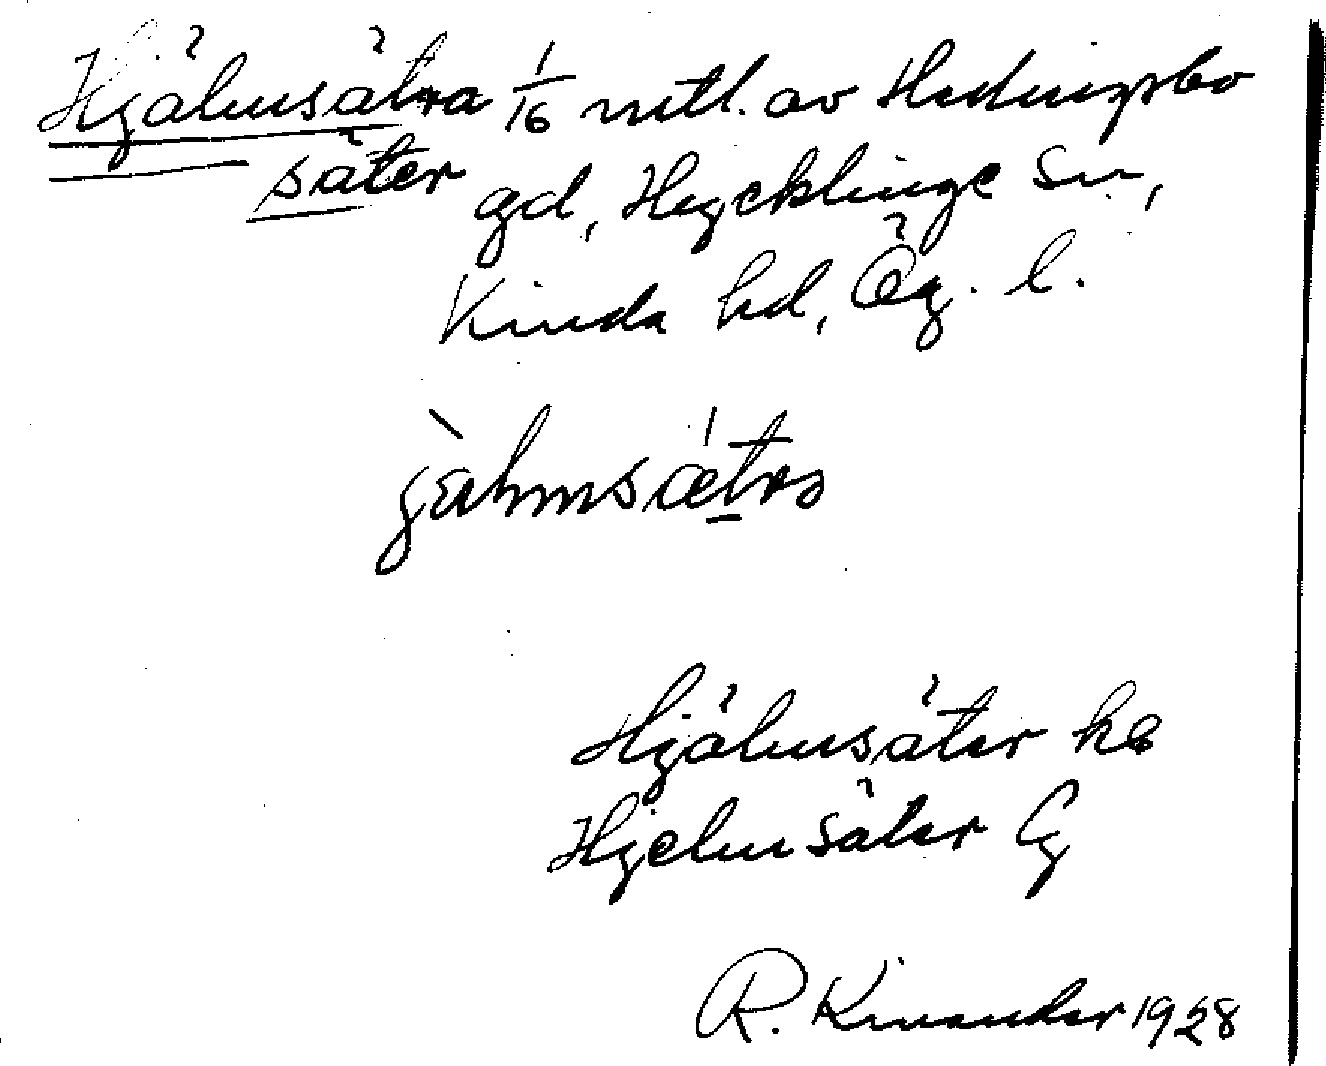 Hjälmsätra 1/16 mtl. av Hedingsbo
säter gd, Hycklinge sn,
Kinda hd, Ög. l.
Hjälmsäter ka
Hjelmsäter Cg
R. Kinander 1928